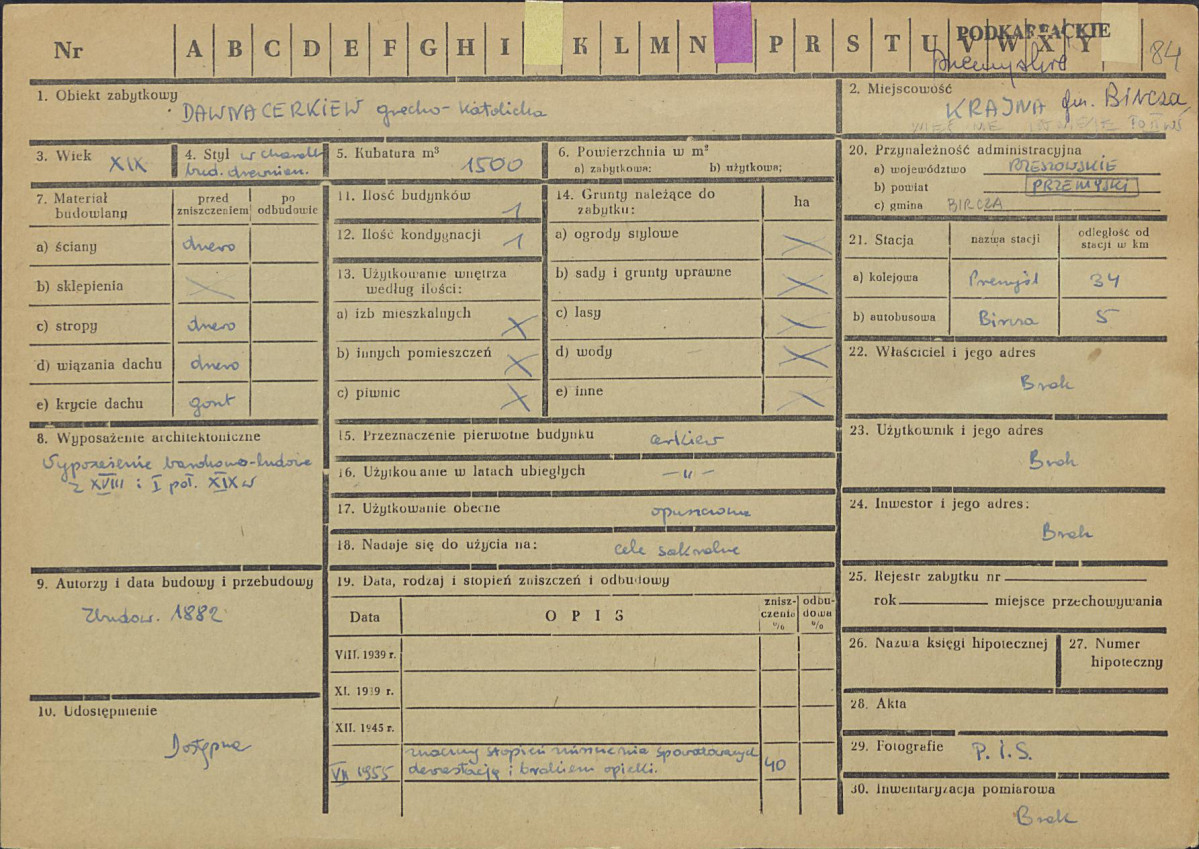 Nr A B C D E F G H I K L M N P R S T U V W X Y
PODKARPACKIE
84
1. Obiekt zabytkowy
DAWNA CERKIEW grecko-katolicka
2. Miejscowość
KRAJNA gm. Bircza
3. Wiek XIX
4. Styl w charakt.
bud. drewnian.
5. Kubatura m³ 1500
6. Powierzchnia w m²
a) zabytkowa: b) użytkowa;
20. Przynależność administracyjna
a) województwo RZESZOWSKIE
b) powiat PRZEMYSKI
c) gmina BIRCZA
7. Materiał budowlany
przed zniszczeniem
po odbudowie
a) ściany drewo
b) sklepienia
c) stropy drewo
d) wiązania dachu drewo
e) krycie dachu gont
8. Wyposażenie architektoniczne
Wyposażenie barokowo-ludowe
z XVIII i I poł. XIX w
9. Autorzy i data budowy i przebudowy
Zbudow. 1882
10. Udostępnienie
Dostępna
11. Ilość budynków 1
12. Ilość kondygnacji 1
13. Użytkowanie wnętrza
według ilości:
a) izb mieszkalnych X
b) innych pomieszczeń X
c) piwnic X
14. Grunty należące do
zabytku:
ha
a) ogrody stylowe X
b) sady i grunty uprawne X
c) lasy X
d) wody X
e) inne X
15. Przeznaczenie pierwotne budynku cerkiew
16. Użytkowanie w latach ubiegłych — " —
17. Użytkowanie obecne opuszczona
18. Nadaje się do użycia na: cele sakralne
19. Data, rodzaj i stopień zniszczeń i odbudowy
Data
OPIS
zniszczenia %
odbudowa %
VIII. 1939 r.
XI. 1939 r.
XII. 1945 r.
VII 1955
znaczny stopień zniszczenia spowodowanych
dewastacją i brakiem opieki.
40
21. Stacja
nazwa stacji
odległość od
stacji w km
a) kolejowa Przemyśl 34
b) autobusowa Bircza 5
22. Właściciel i jego adres
Brak
23. Użytkownik i jego adres
Brak
24. Inwestor i jego adres:
Brak
25. Rejestr zabytku nr
rok miejsce przechowywania
26. Nazwa księgi hipotecznej
27. Numer
hipoteczny
28. Akta
29. Fotografie P.I.S.
30. Inwentaryzacja pomiarowa
Brak